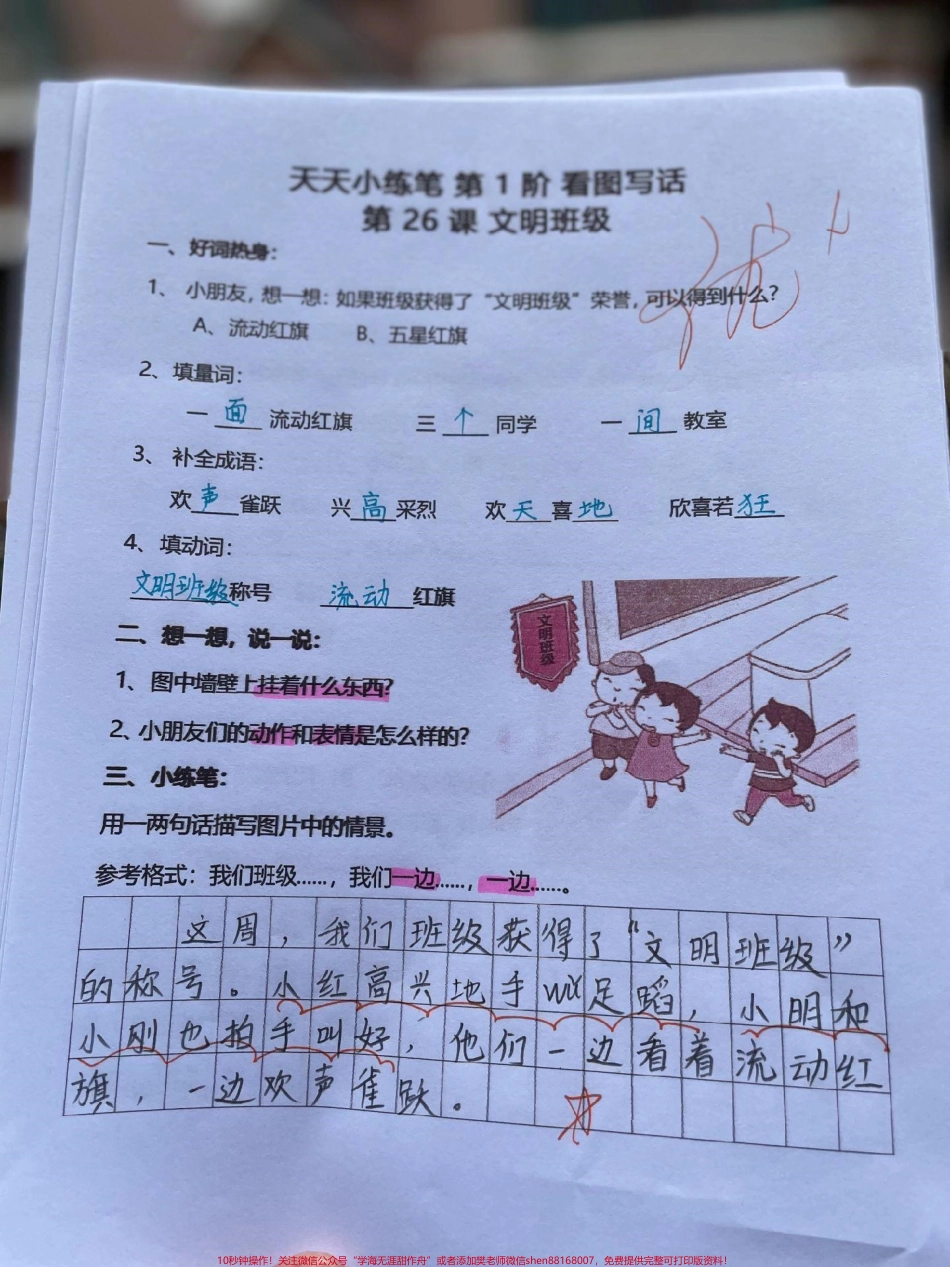 天天小练笔 第 1 阶 看图写话
第 26 课 文明班级
一、好词热身：
1、 小朋友，想一想：如果班级获得了“文明班级”荣誉，可以得到什么？
A、流动红旗 B、五星红旗
2、填量词：
一 面 流动红旗 三 个 同学 一 间 教室
3、 补全成语：
欢声雀跃 兴高采烈 欢天喜地 欣喜若狂
4、 填动词：
文明班级称号 流动 红旗
文明班级
二、想一想，说一说：
1、图中墙壁上挂着什么东西？
2、小朋友们的动作和表情是怎么样的？
三、小练笔：
用一两句话描写图片中的情景。
参考格式：我们班级……，我们一边……，一边……。
这周，我们班级获得了“文明班级”
的称号。小红高兴地手wǔ足蹈，小明和
小刚也拍手叫好，他们一边看着流动红
旗，一边欢声雀跃。
10秒钟操作！关注微信公众号“学海无涯甜作舟”或者添加樊老师微信shen88168007，免费提供完整可打印版资料！